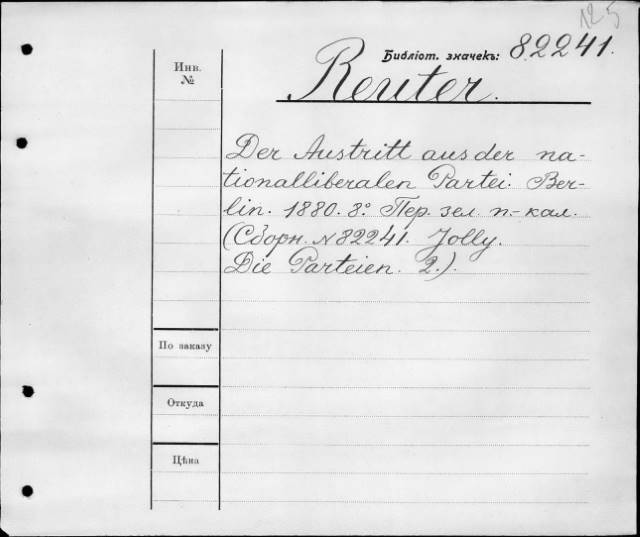 125
Библіот. значекъ: 82241.
Инв.
№
Reuter.
Der Austritt aus der na-
tionalliberalen Partei. Ber-
lin. 1880. 8°. Пер. зел. п.-кал.
(Сборн. № 82241. Jolly.
Die Parteien. 2.).
По заказу
Откуда
Цѣна